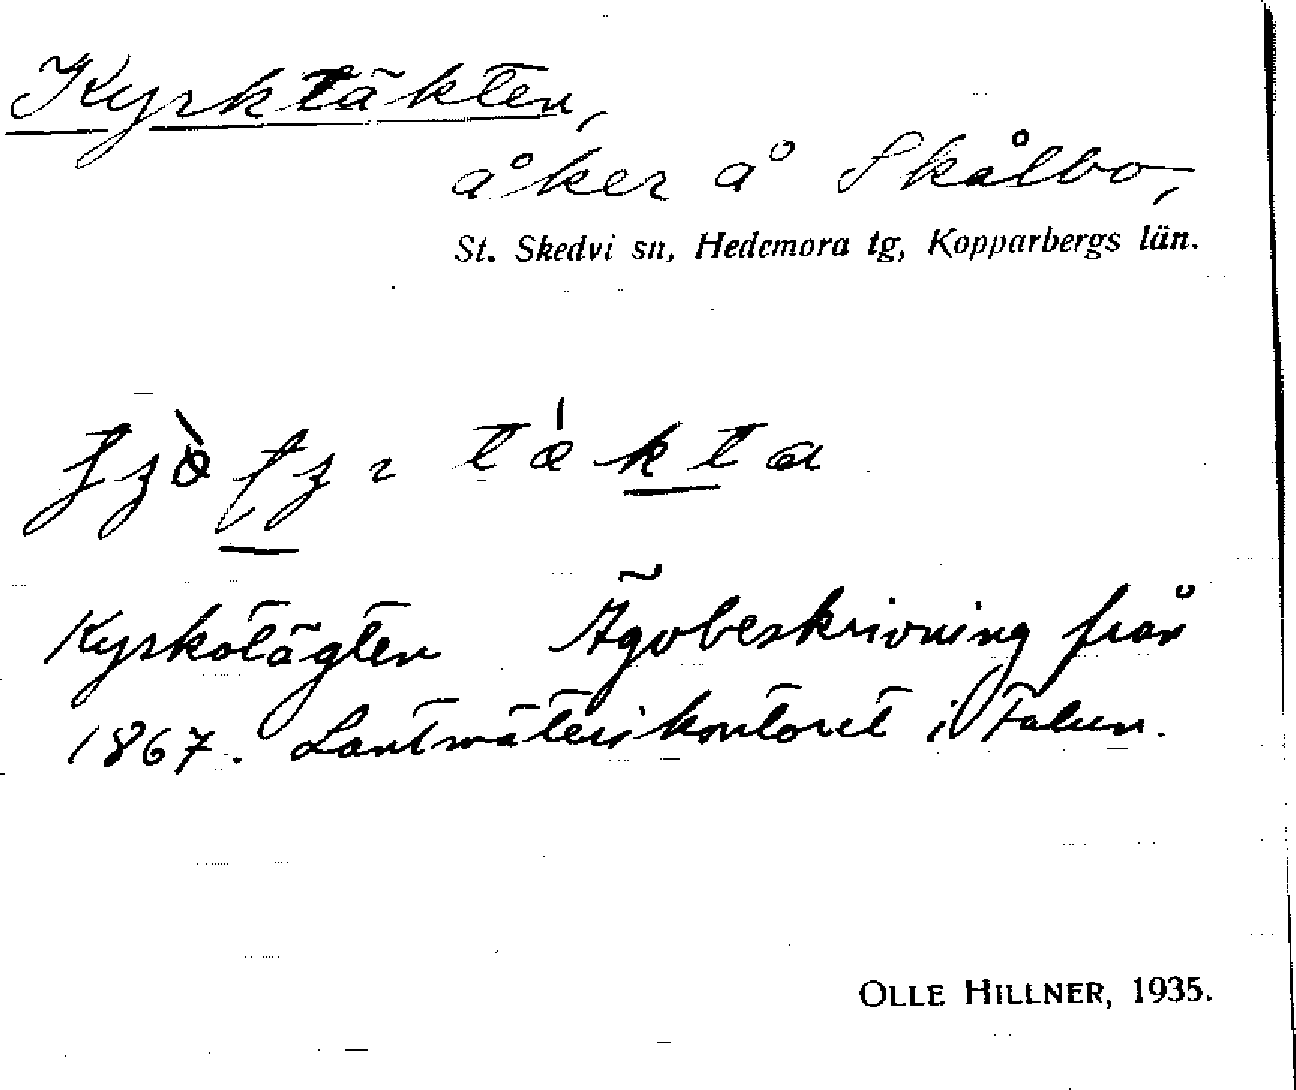 Kyrktäkten,
åker å Skålbo,
St. Skedvi sn, Hedemora tg, Kopparbergs län.
Kyrkotägten Ägobeskrivning från
1867. Lantmäterikontoret i Falun.
OLLE HILLNER, 1935.